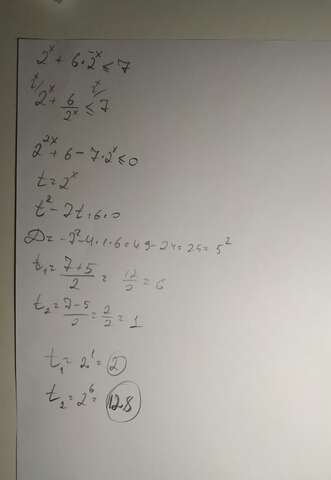 2ˣ + 6 · 2⁻ˣ ≤ 7
2ˣ/ 2ˣ + 6/2ˣ ≤ 2ˣ/ 7
2²ˣ + 6 - 7 · 2ˣ ≤ 0
t = 2ˣ
t² - 7t + 6 = 0
D = -7² - 4 · 1 · 6 = 49 - 24 = 25 = 5²
t₁ = (7+5)/2 = 12/2 = 6
t₂ = (7-5)/2 = 2/2 = 1
t₁ = 2¹ = 2
t₂ = 2⁶ = 128